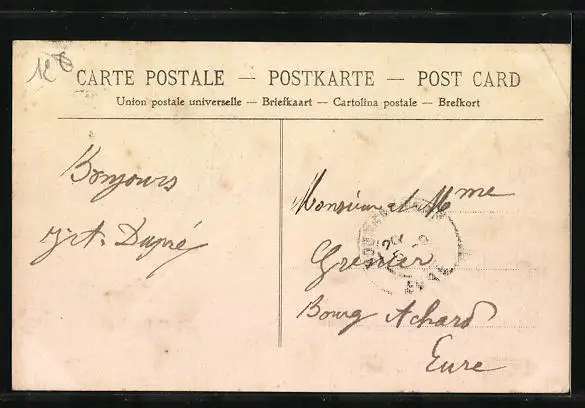 CARTE POSTALE — POSTKARTE — POST CARD
Union postale universelle — Briefkaart — Cartolina postale — Brefkort
Bonjours
Dupré
Monsieur et Mme
Grenier
Bourg Achard
Eure